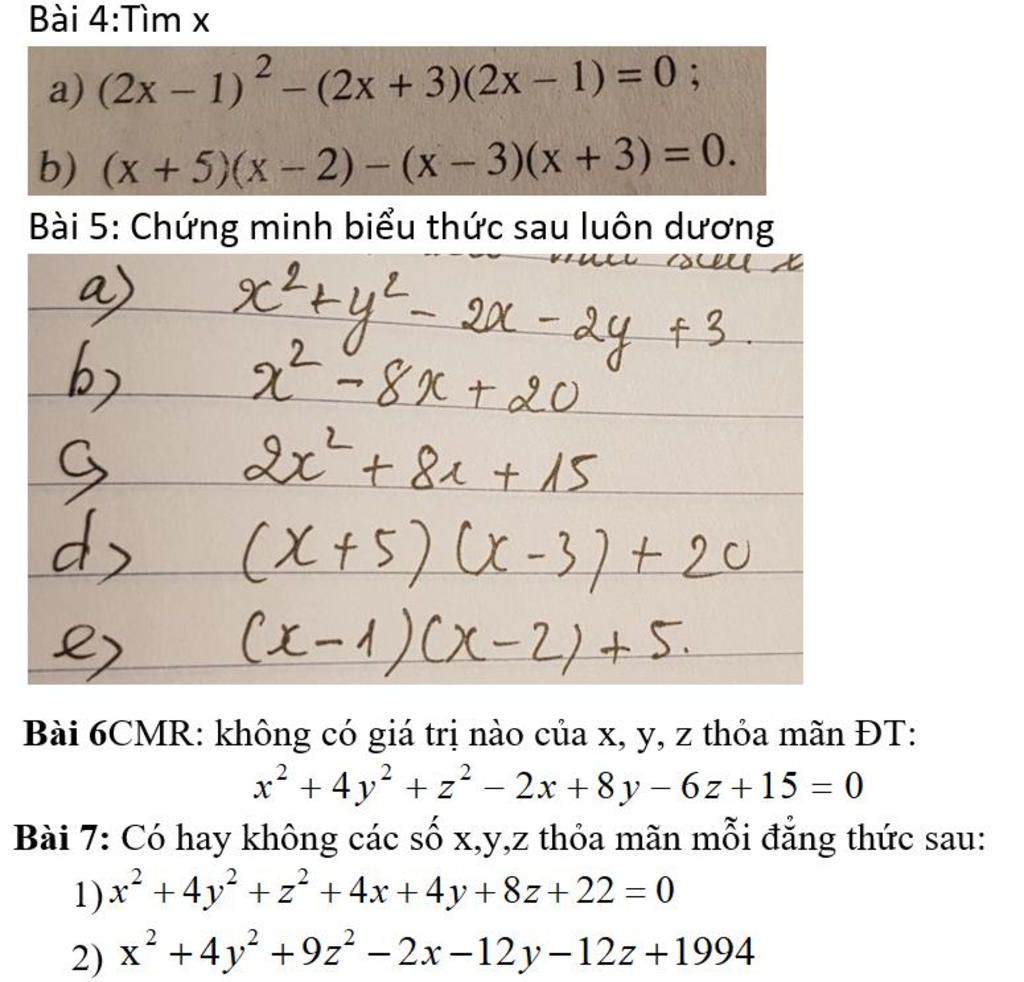 Bài 4:Tìm x
a) (2x – 1)² – (2x + 3)(2x – 1) = 0 ;
b) (x + 5)(x – 2) – (x – 3)(x + 3) = 0.
Bài 5: Chứng minh biểu thức sau luôn dương
a) x² + y² – 2x – 2y + 3.
b) x² – 8x + 20
c) 2x² + 8x + 15
d) (x+5)(x-3) + 20
e) (x-1)(x-2) + 5.
Bài 6CMR: không có giá trị nào của x, y, z thỏa mãn ĐT:
x² + 4y² + z² – 2x + 8y – 6z + 15 = 0
Bài 7: Có hay không các số x,y,z thỏa mãn mỗi đẳng thức sau:
1) x² + 4y² + z² + 4x + 4y + 8z + 22 = 0
2) x² + 4y² + 9z² – 2x – 12y – 12z + 1994